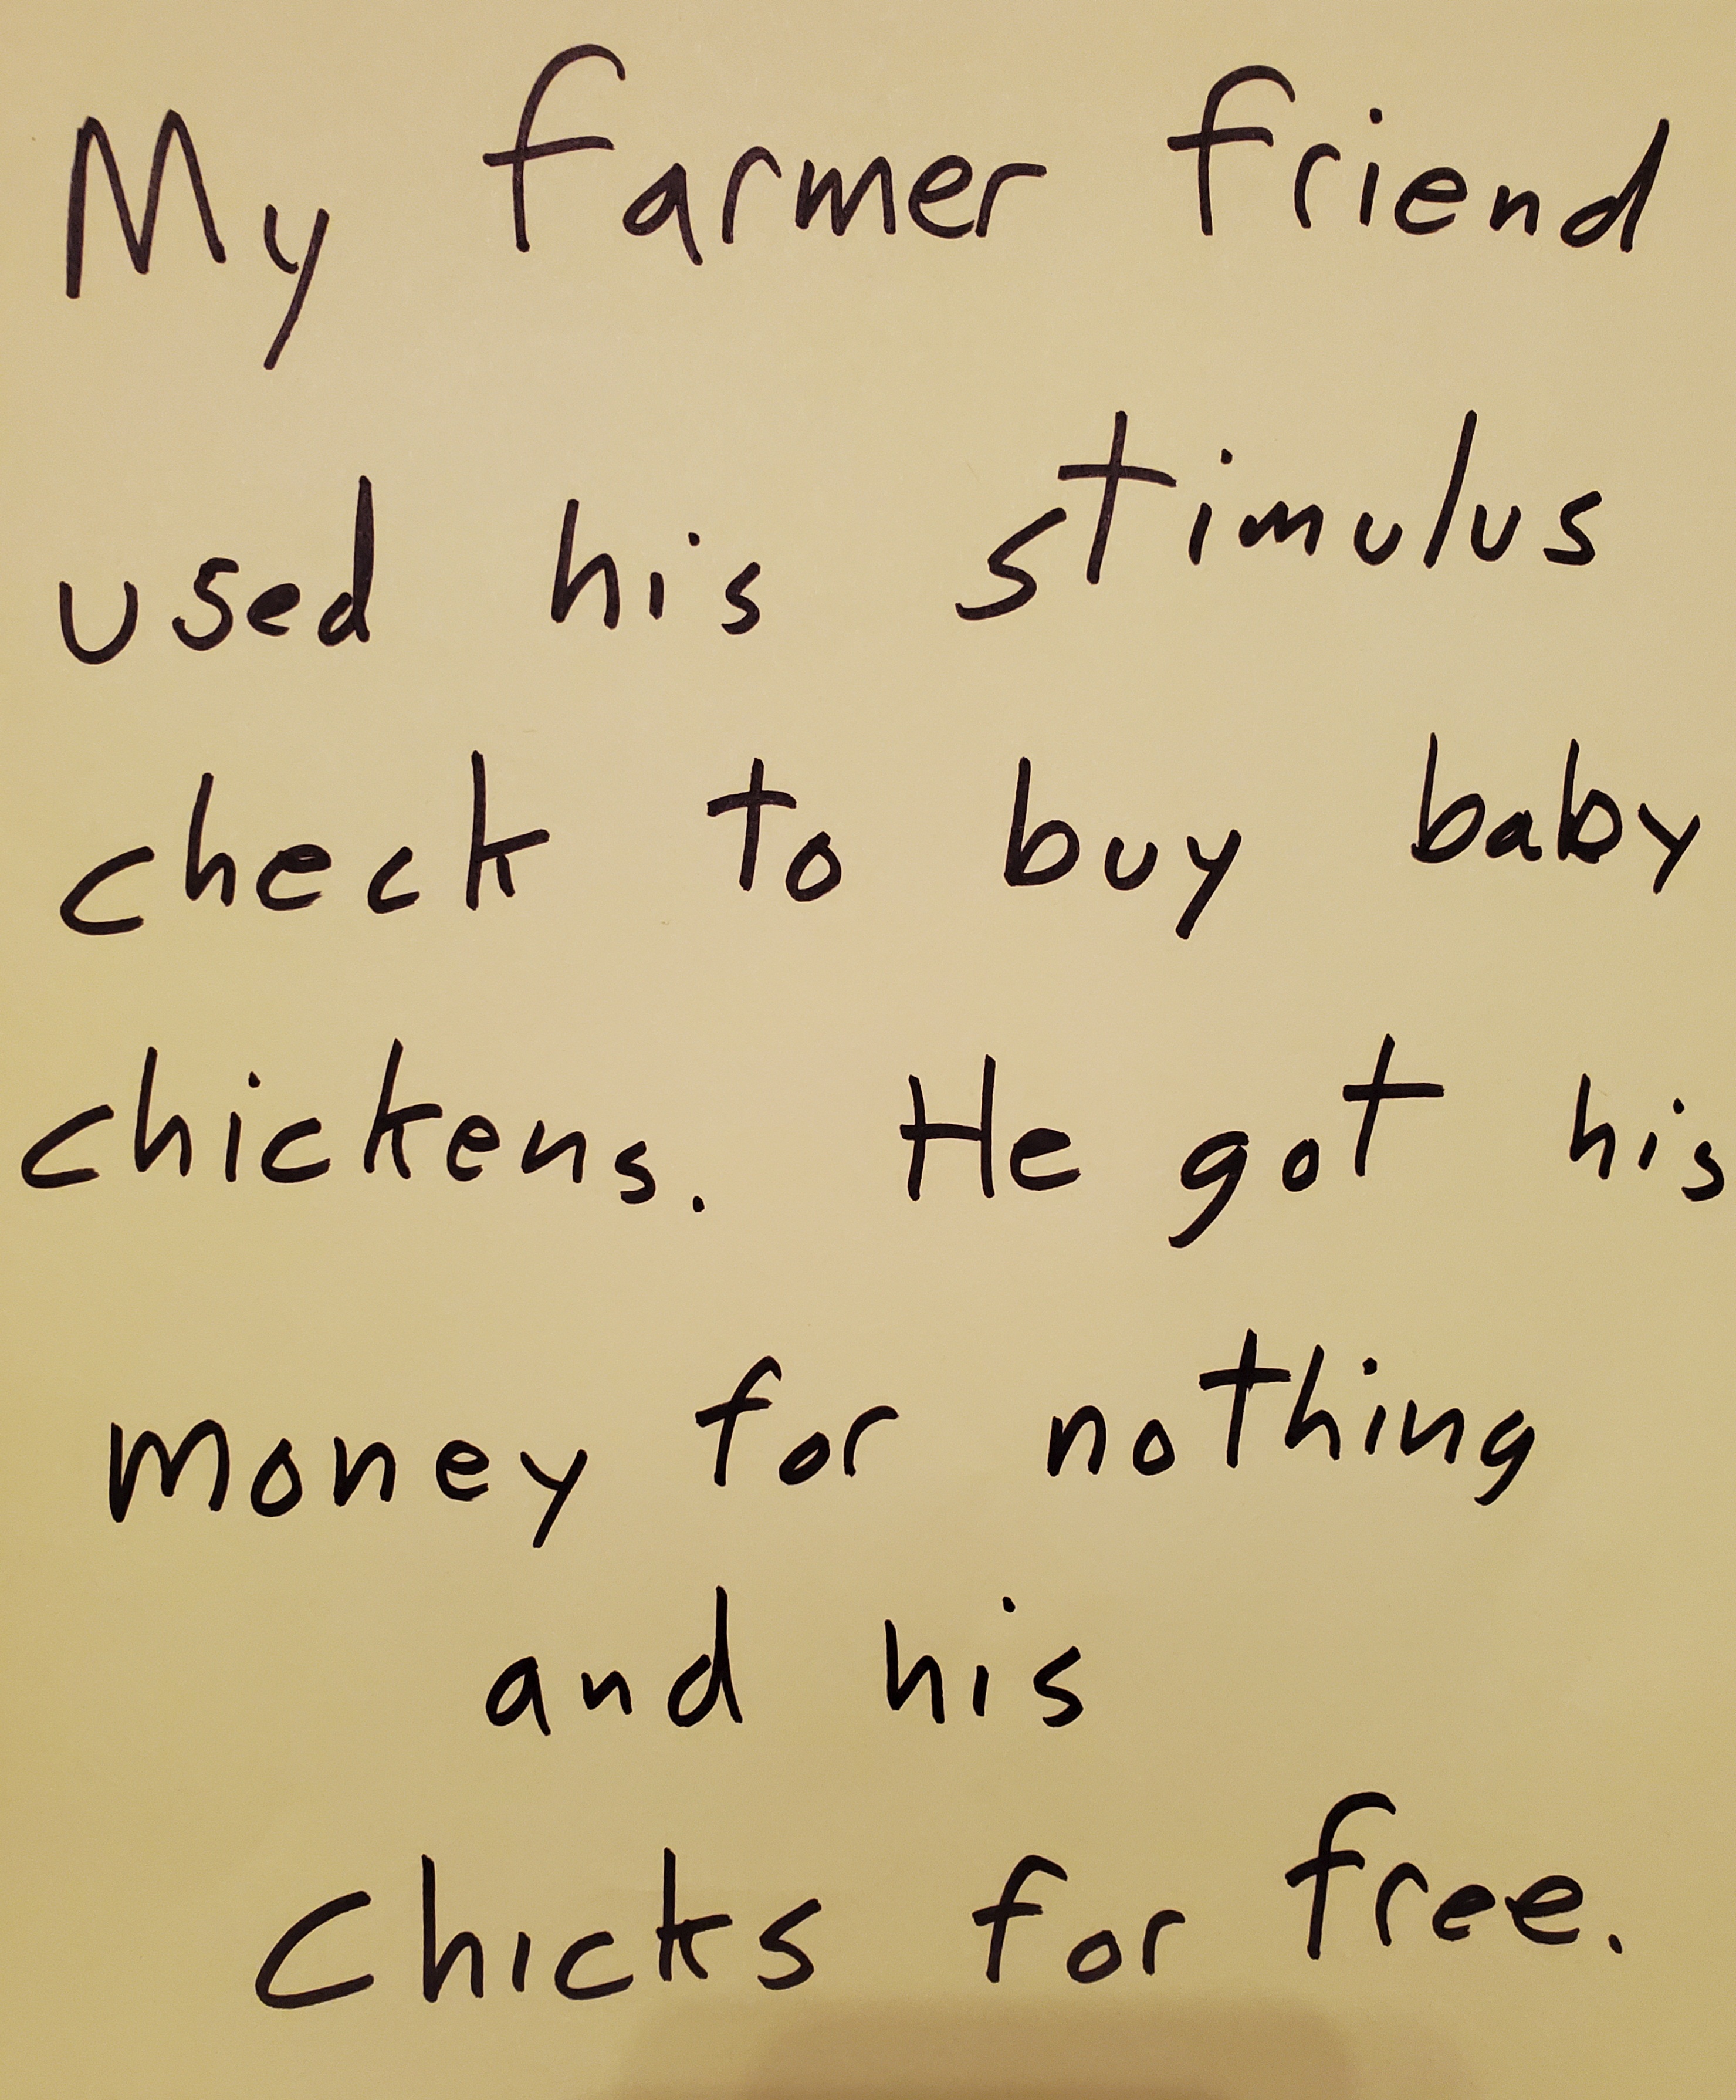 My farmer friend
used his stimulus
check to buy baby
chickens. He got his
money for nothing
and his
Chicks for free.